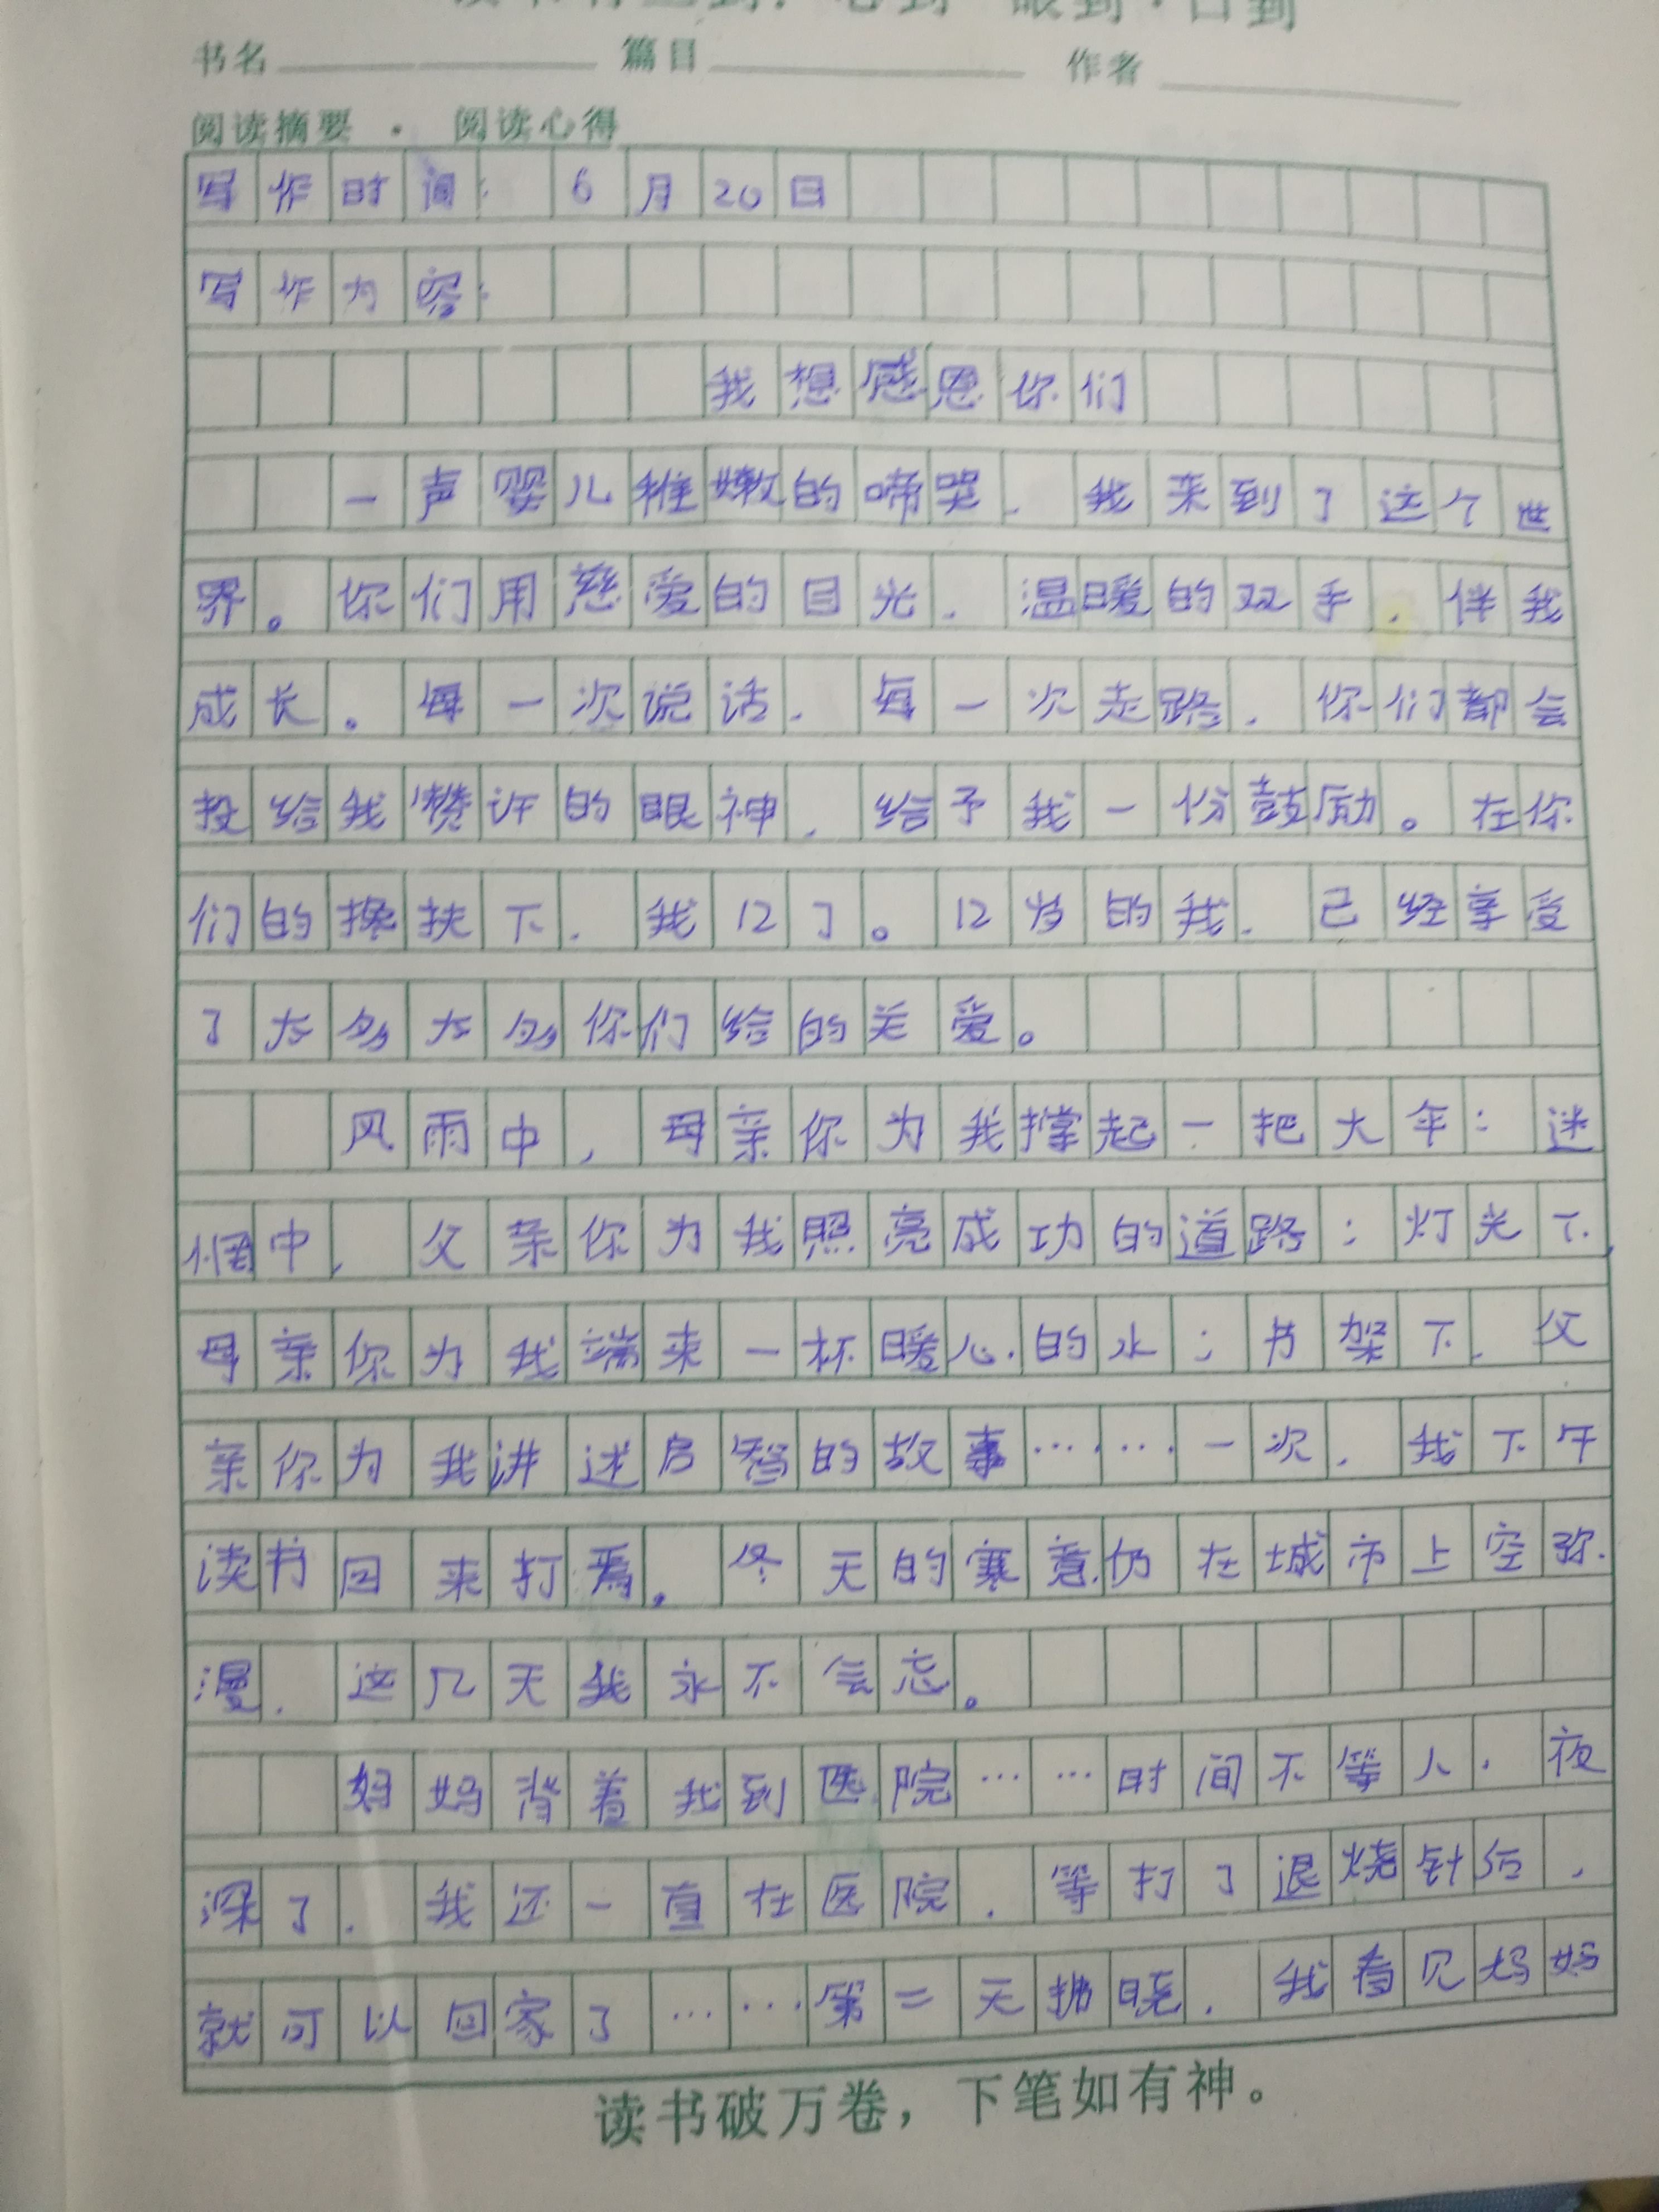 读书有三到：心到·眼到·口到
书名 篇目 作者
阅读摘要 · 阅读心得
写作时间：6月20日
写作内容：
我想感恩你们
一声婴儿稚嫩的啼哭，我来到了这个世
界。你们用慈爱的目光，温暖的双手，伴我
成长。每一次说话，每一次走路，你们都会
投给我赞许的眼神，给予我一份鼓励。在你
们的搀扶下，我12了。12岁的我，已经享受
了太多太多你们给的关爱。
风雨中，母亲你为我撑起一把大伞；迷
惘中，父亲你为我照亮成功的道路；灯光下，
母亲你为我端来一杯暖心的水；书架下，父
亲你为我讲述启智的故事……一次，我下午
读书回来打焉，冬天的寒意仍在城市上空弥
漫，这几天我永不会忘。
妈妈背着我到医院……时间不等人，夜
深了，我还一直在医院，等打了退烧针后，
就可以回家了……第二天拂晓，我看见妈妈
读书破万卷，下笔如有神。